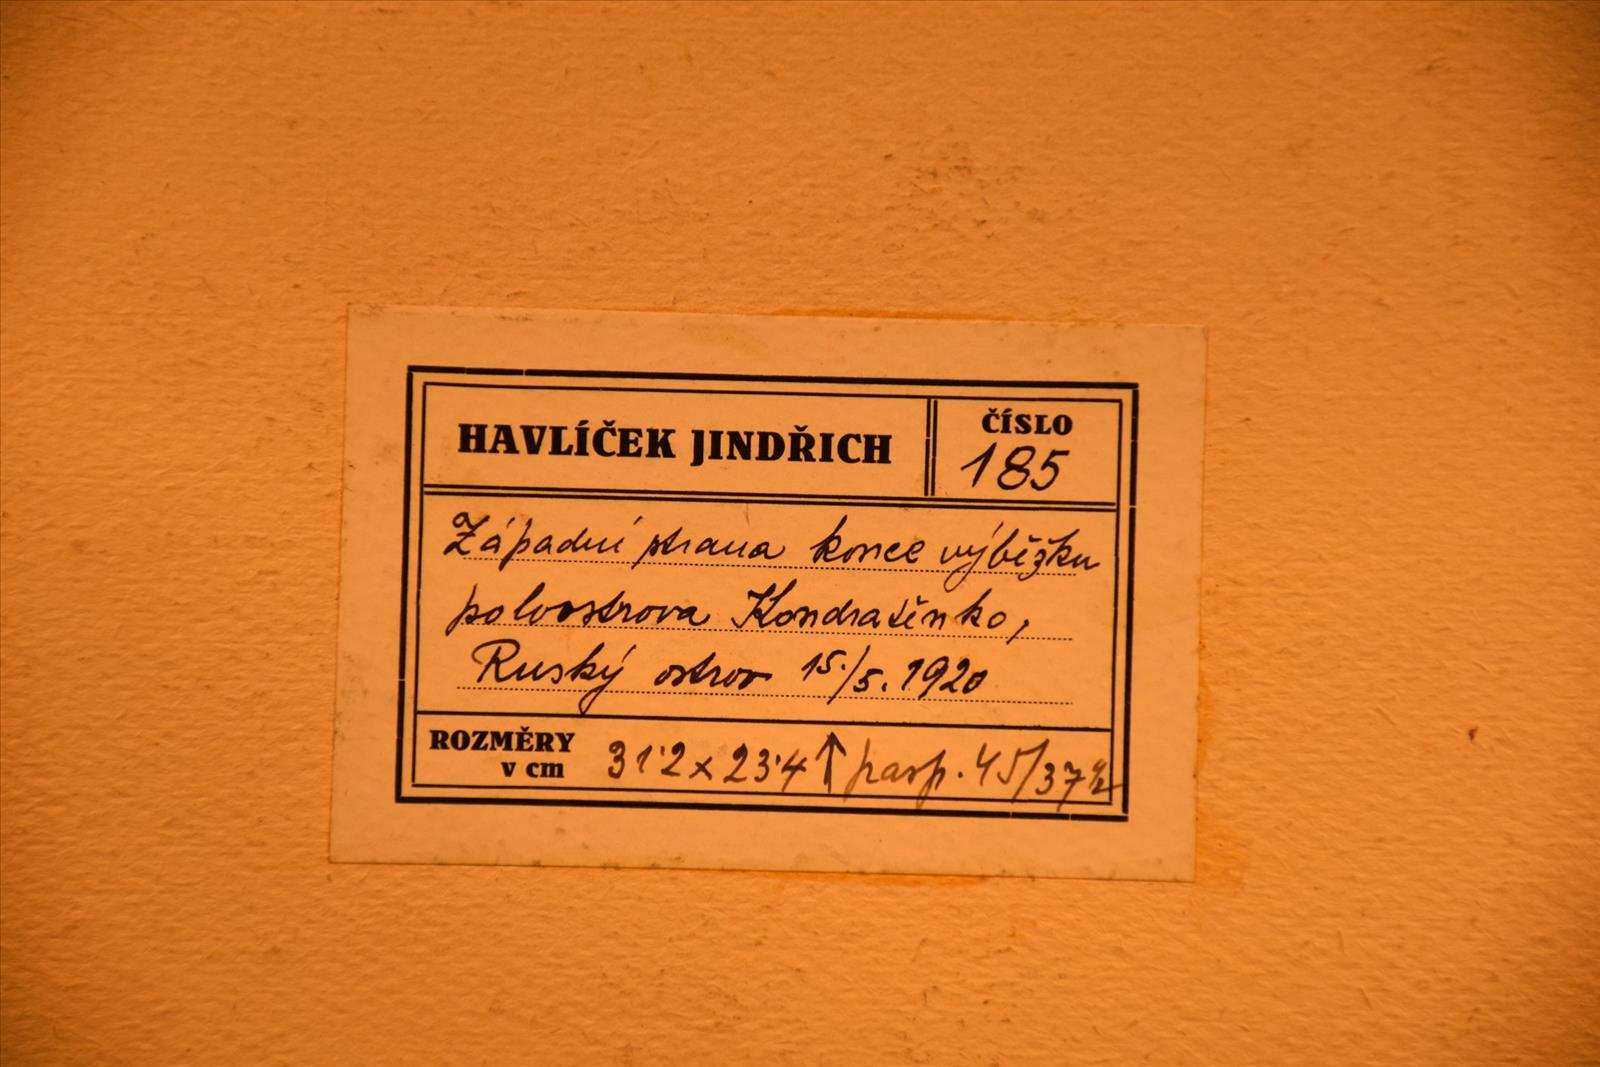 HAVLÍČEK JINDŘICH
ČÍSLO
185
Západní strana konce výběžku
poloostrova Kondratěnko,
Ruský ostrov 15./5. 1920
ROZMĚRY
v cm
31·2 x 23·4 ↑ pasp. 45/37 ½